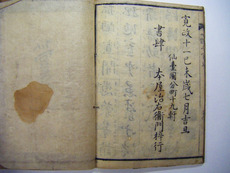 寛政十一己未歳七月吉旦
仙臺國分町十九軒
書肆 本屋治右衛門梓行